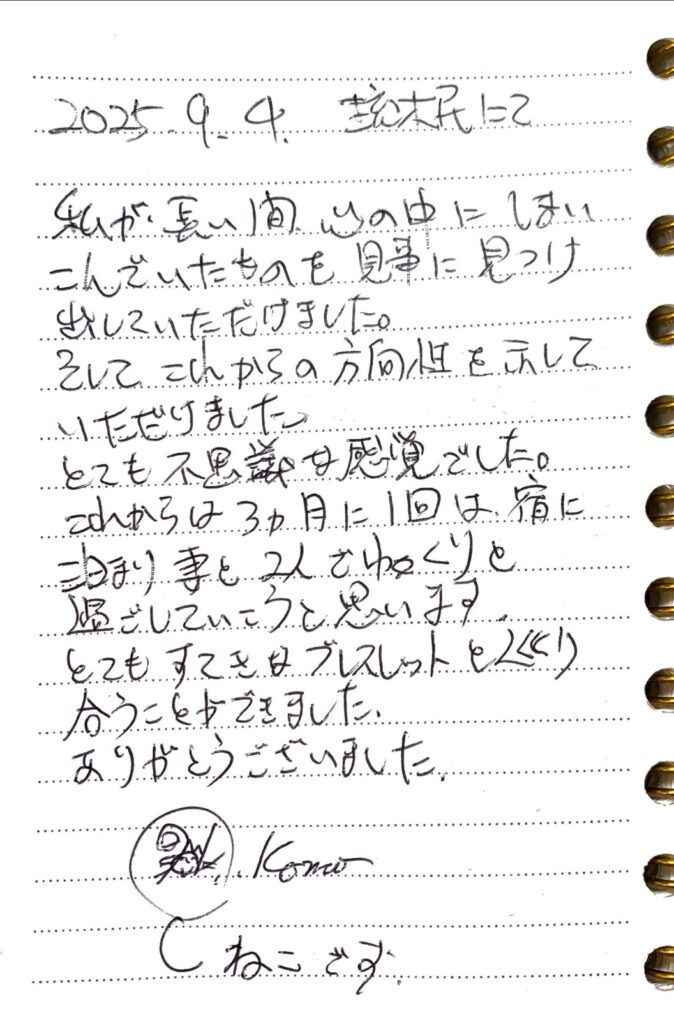 2025.9.4. 琉木民にて
私が長い間心の中にしまい
こんでいたものを見事に見つけ
出していただけました。
そしてこれからの方向性を示して
いただけました。
とても不思議な感覚でした。
これからは3ヵ月に1回は宿に
泊まり妻と2人でゆっくりと
過ごしていこうと思います.
とてもすてきなブレスレットとめぐり
合うことができました.
ありがとうございました.
ねこです.